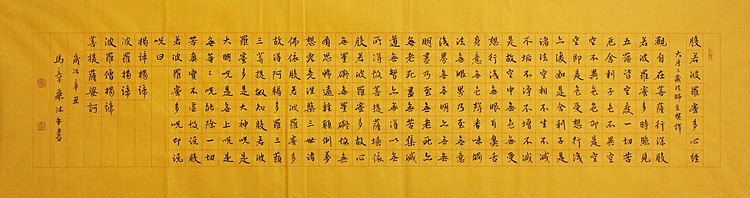 般若波羅蜜多心經
大唐三藏法師玄奘譯
觀自在菩薩行深般
若波羅蜜多時照見
五蘊皆空度一切苦
厄舍利子色不異空
空不異色色即是空
空即是色受想行識
亦復如是舍利子是
諸法空相不生不滅
不垢不淨不增不減
是故空中無色無受
想行識無眼耳鼻舌
身意無色聲香味觸
法無眼界乃至無意
識界無無明亦無無
明盡乃至無老死亦
無老死盡無苦集滅
道無智亦無得以無
所得故菩提薩埵依
般若波羅蜜多故心
無罣礙無罣礙故無
有恐怖遠離顛倒夢
想究竟涅槃三世諸
佛依般若波羅蜜多
故得阿耨多羅三藐
三菩提故知般若波
羅蜜多是大神咒是
大明咒是無上咒是
無等等咒能除一切
苦真實不虛故說般
若波羅蜜多咒即說
咒曰
揭諦揭諦
波羅揭諦
波羅僧揭諦
菩提薩婆訶
歲次辛丑
書